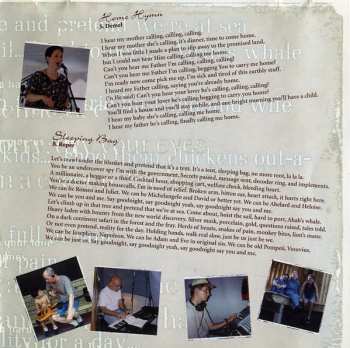 and pretend we're at sea
Home Hymn
S. Demel
I hear my mother calling, calling, calling!
I hear my mother she's calling, it's dinner, time to come home.
When I was little I made a plan to slip away to the promised land,
but I could not hear Him calling, calling me home.
Can't you hear my Father I'm calling, calling, calling!
Can't you hear my Father I'm calling, begging You to carry me home!
I'm ready now come pick me up, I'm sick and tired of this earthly stuff.
I heard my Father calling, saying you're already home.
He said, He said; Can't you hear your lover he's calling, calling, calling!
Can't you hear your lover he's calling begging to carry you home!
You'll find a house and you'll stay awhile, and one bright morning you'll have a child.
I hear my baby she's calling, calling me home,
I hear my father he's calling, finally calling me home.
Sleeping Bag
S.
Let's crawl under the blanket and pretend that it's a tent. It's a tent, sleeping bag, no more rent, la la la.
You be undercover spy I'm with the government. Secrets passed, teenage scent, decoder ring, and implements.
A millionaire, a beggar or a thief. Cocktail hour, shopping cart, welfare check, bleeding heart.
You're a doctor making housecalls, I'm in need of relief. Broken arm, bitten ear, heart attack, it hurts right here.
We can be Romeo and Juliet. We can be Michelangelo and David or better yet. We can be Abelard and Heloise.
We can be you and me. Say goodnight, say goodnight yeah, say goodnight say you and me.
Let's climb up in that tree and pretend that we're at sea. Come about, hoist the sail, hard to port, Ahab's whale.
Heavy laden with bounty from the new world discovery. Silver mask, porcelain, gold, questions raised, tales told.
On a dark continent safari in the forest and the free. Herds of beasts, snakes of palm, monkey bites, lion's mane.
Or not even pretend, reality for the day. Holding hands, walk real slow, just be us just be we.
We can be Josephine, Napoleon. We can be Adam and Eve in original sin. We can be old Pompeii, Vesuvius.
We can be just us. Say goodnight, say goodnight yeah, say goodnight say you and me.